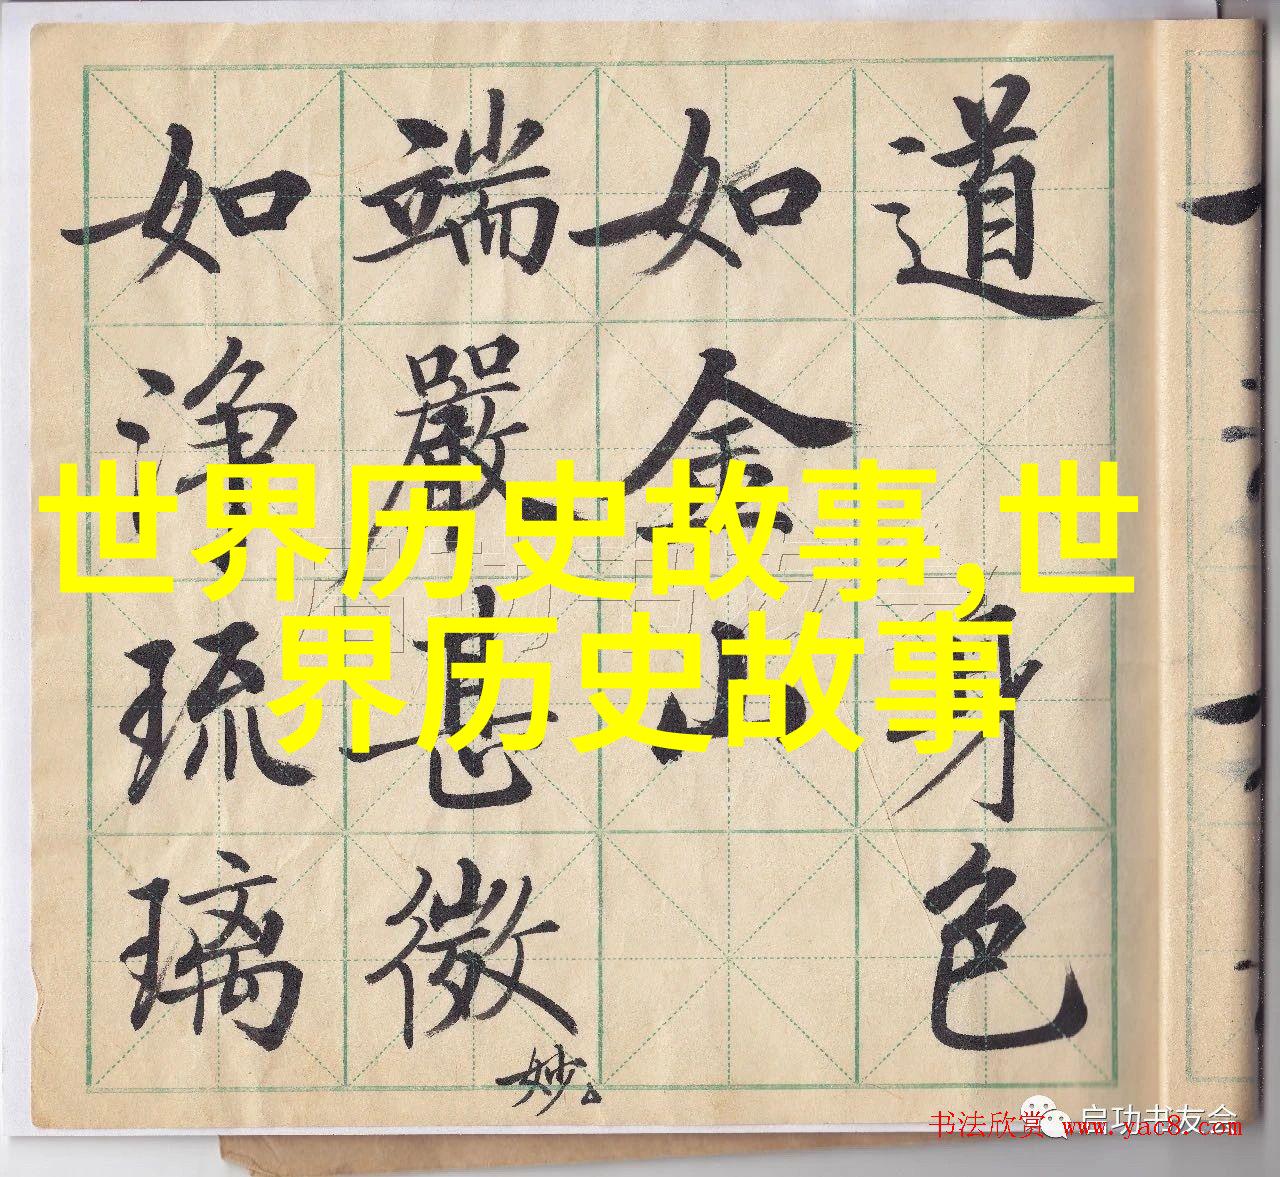 道身色
如金山
端嚴甚微
妙
如淨琉璃
世界历史故事,世
界历史故事
启功书友会
书法欣赏 www.yac8.com